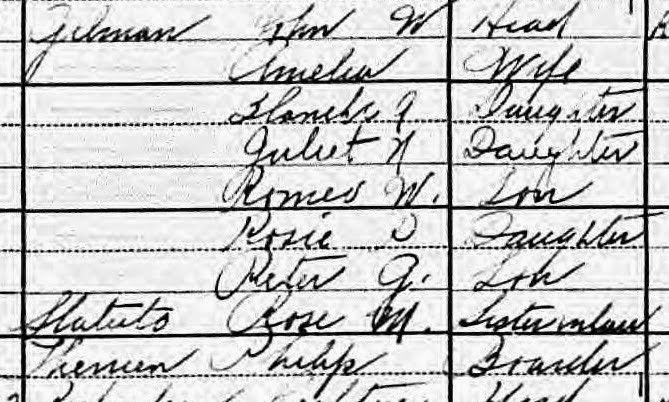 Gilman John W Head
Amelia Wife
Blanche J Daughter
Juliet N Daughter
Romeo W. Son
Rosie D Daughter
Peter G. Son
Statuto Rose M. Sister in law
Therrien Philip Boarder
Head